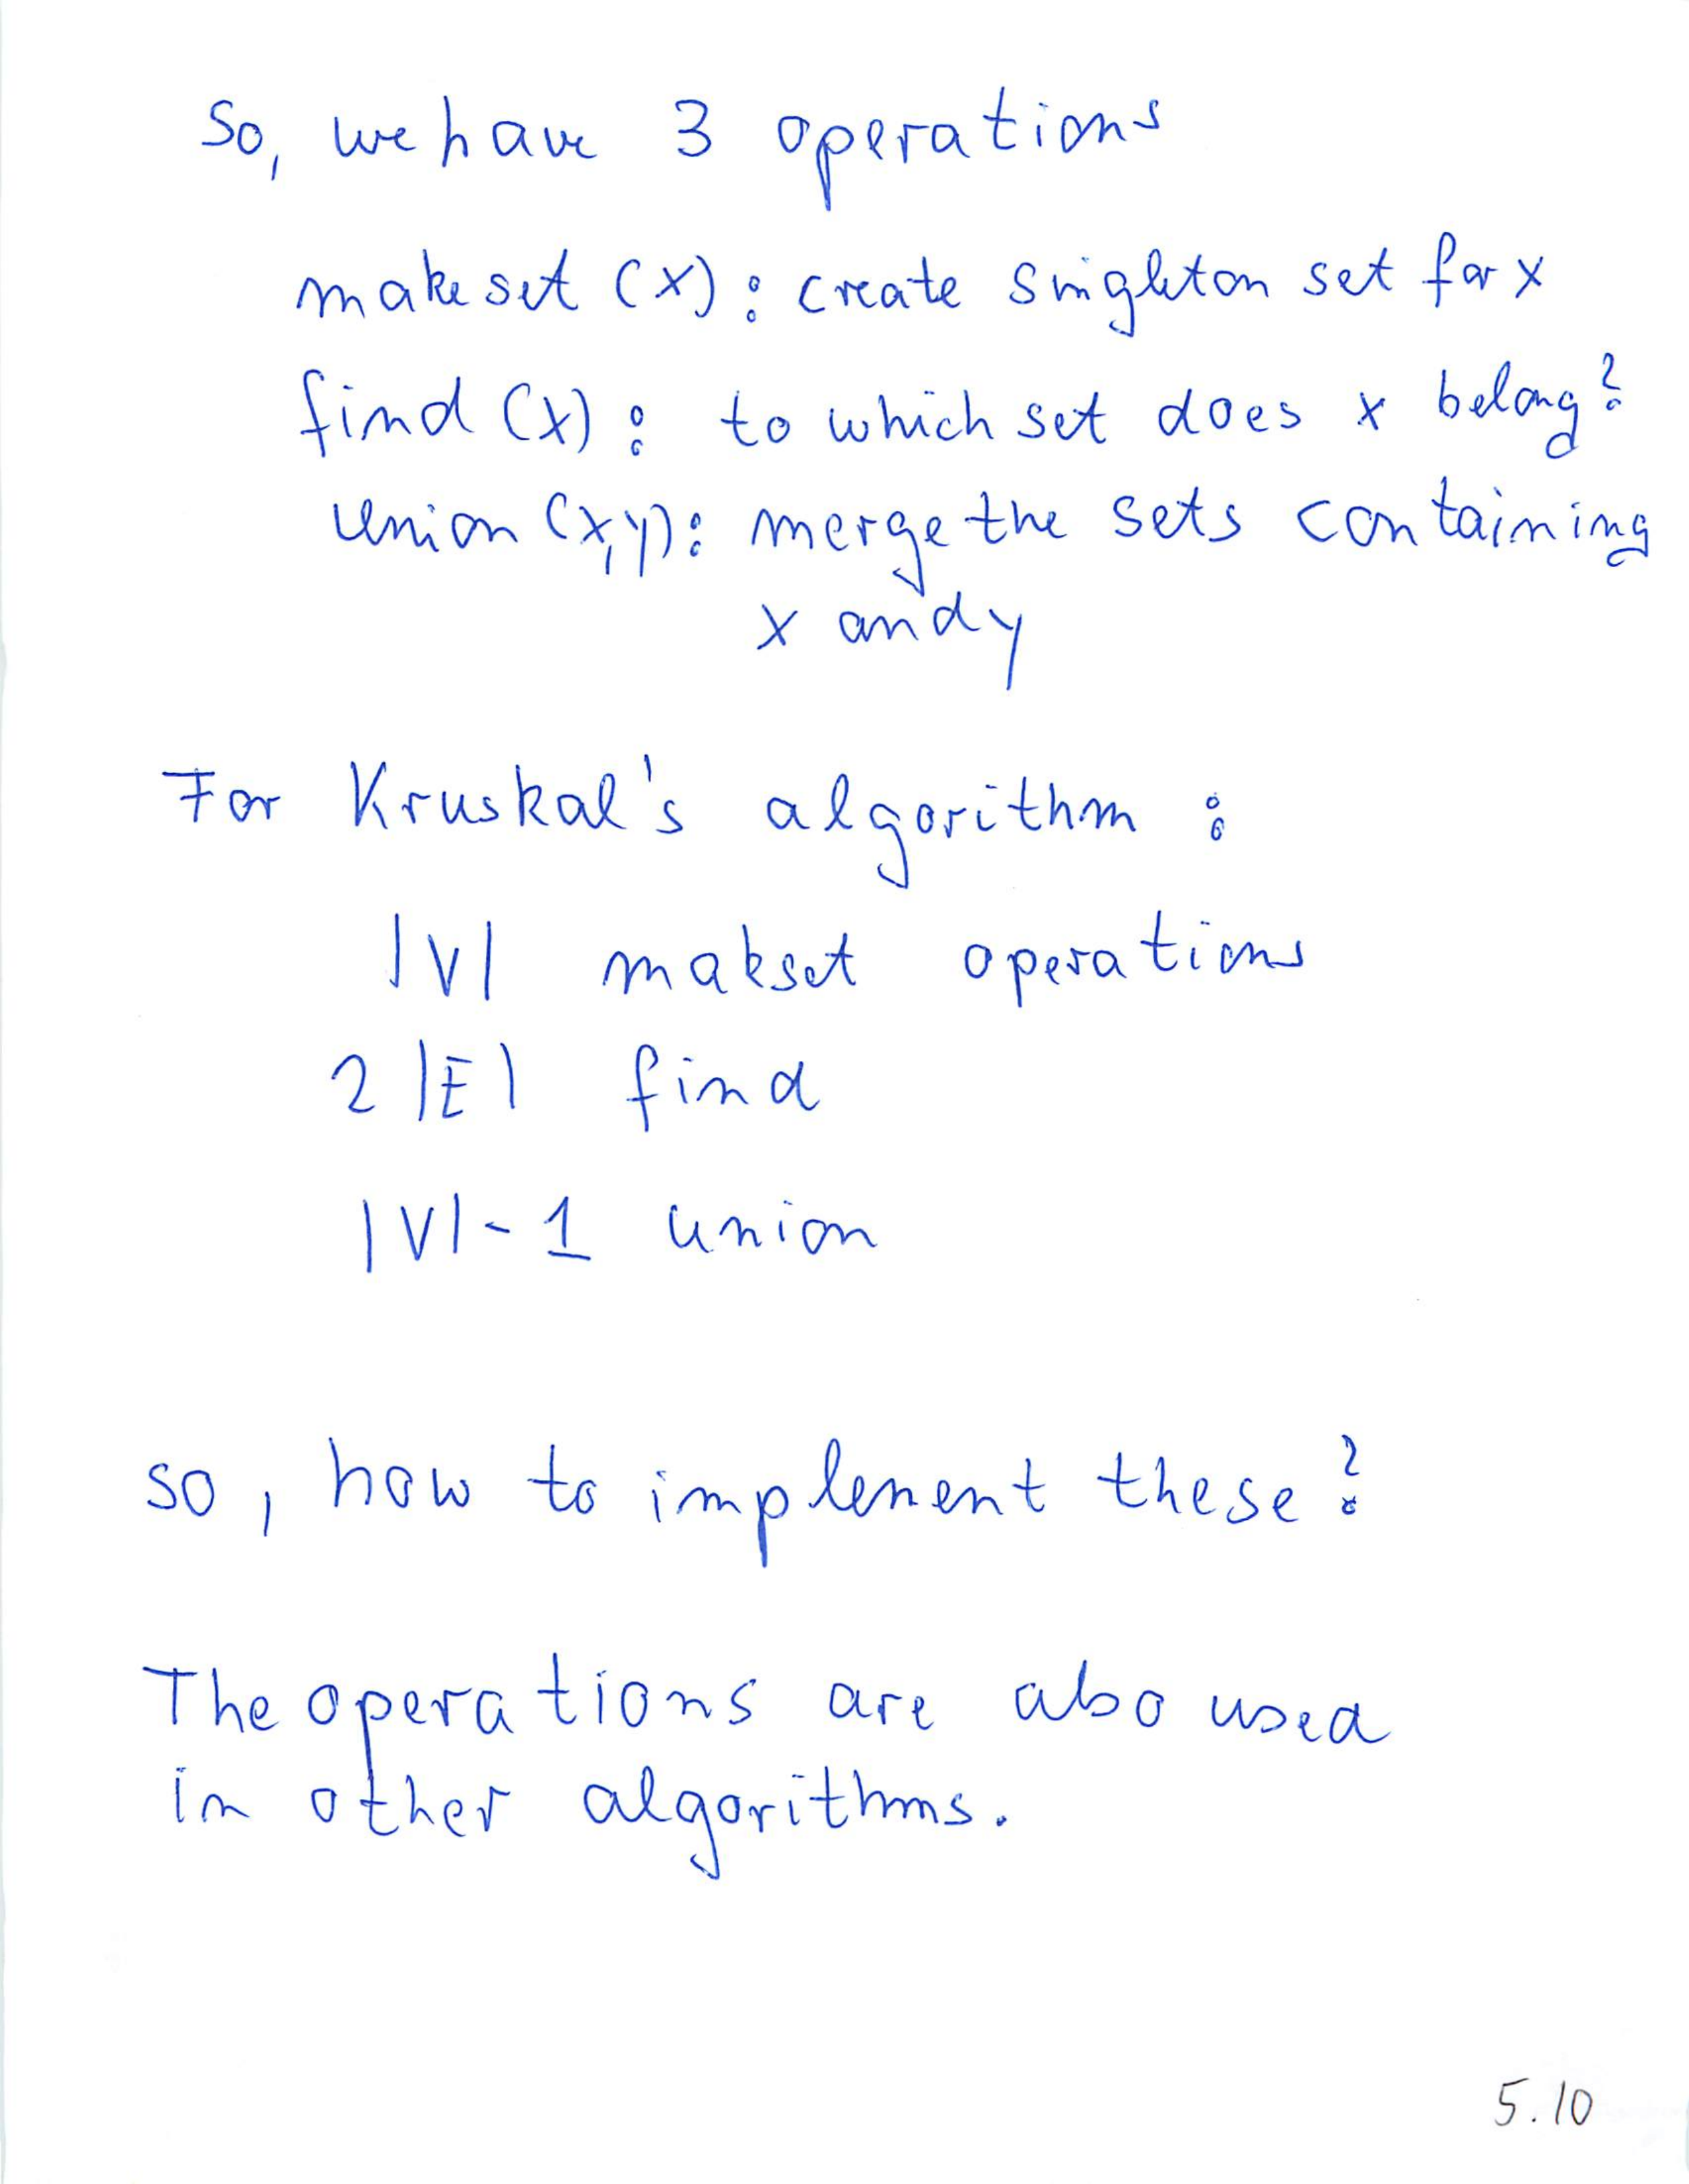 So, we have 3 operations
makeset (x): create singleton set for x
find (x): to which set does x belong?
union (x,y): merge the sets containing
x and y
For Kruskal's algorithm :
|V| makset operations
2 |E| find
|V| - 1 union
so, how to implement these?
The operations are also used
in other algorithms.
5.10